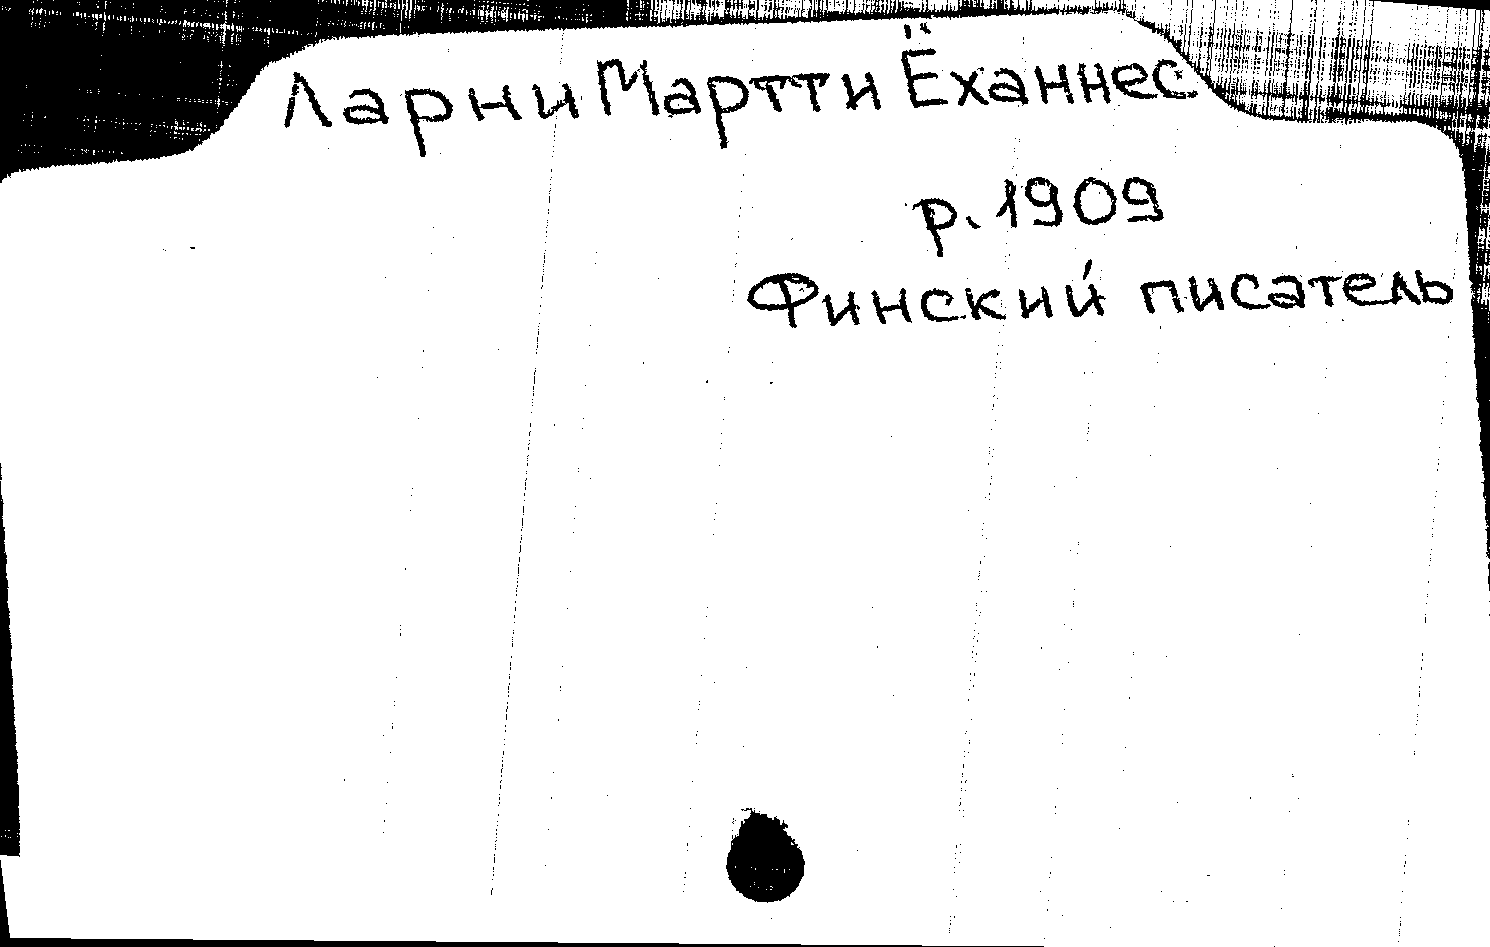 Ларни Мартти Ёханнес
р. 1909
Финский писатель